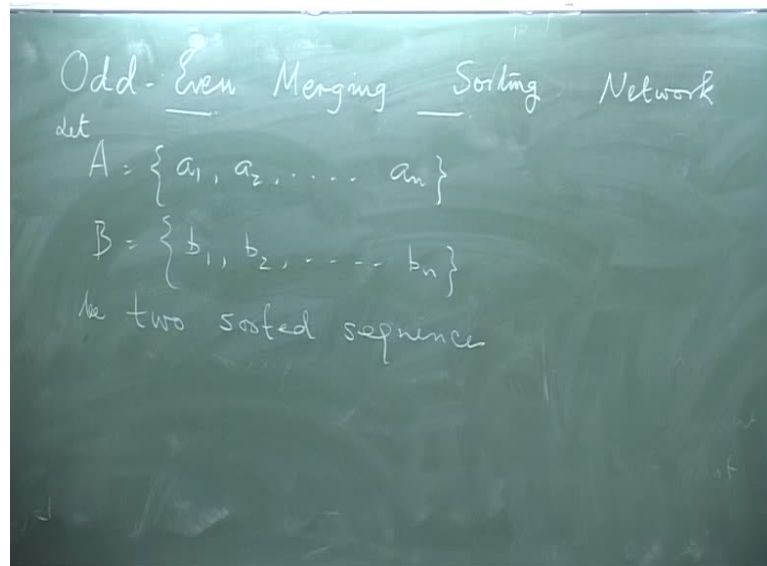 Odd-Even Merging Sorting Network
Let
A = { a1, a2, .... an }
B = { b1, b2, ..... bn }
be two sorted sequences